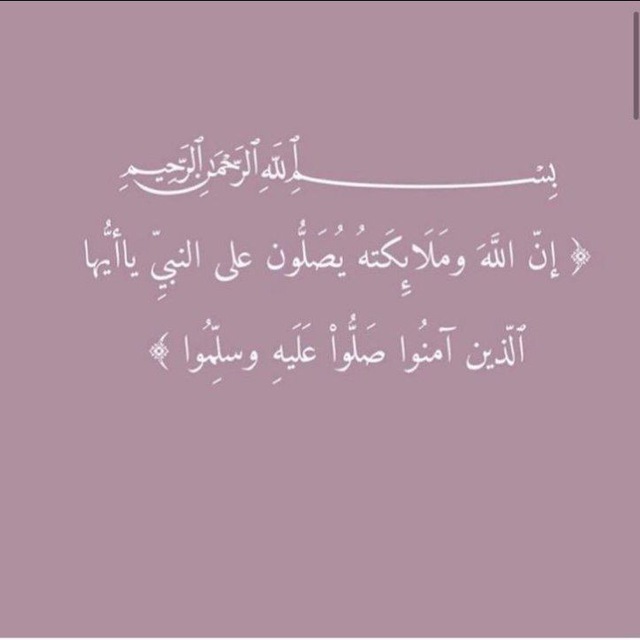 بِسْمِ اللَّهِ الرَّحْمَٰنِ الرَّحِيمِ
﴿ إنّ اللَّهَ ومَلَايِٕكَتهُ يُصَلُّون على النبيِّ ياأيُّها
ٱلّذين آمنُوا صَلُّواْ عَلَيهِ وسلِّمُوا ﴾